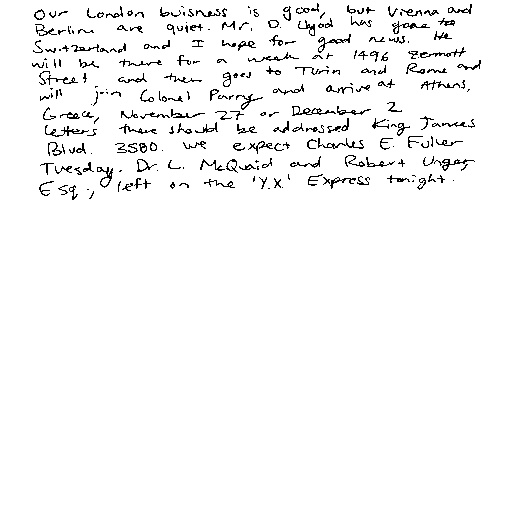 Our London buisness is good, but Vienna and
Berlin are quiet. Mr. D. Lloyd has gone to
Switzerland and I hope for good news. He
will be there for a week at 1496 Zermott
Street and then goes to Turin and Rome and
will join Colonel Parry and arrive at Athens,
Greece, November 27 or December 2
Letters there should be addressed King James
Blvd. 3580. We expect Charles E. Fuller
Tuesday. Dr. L. McQuaid and Robert Unger,
Esq., left on the 'Y.X.' Express tonight.